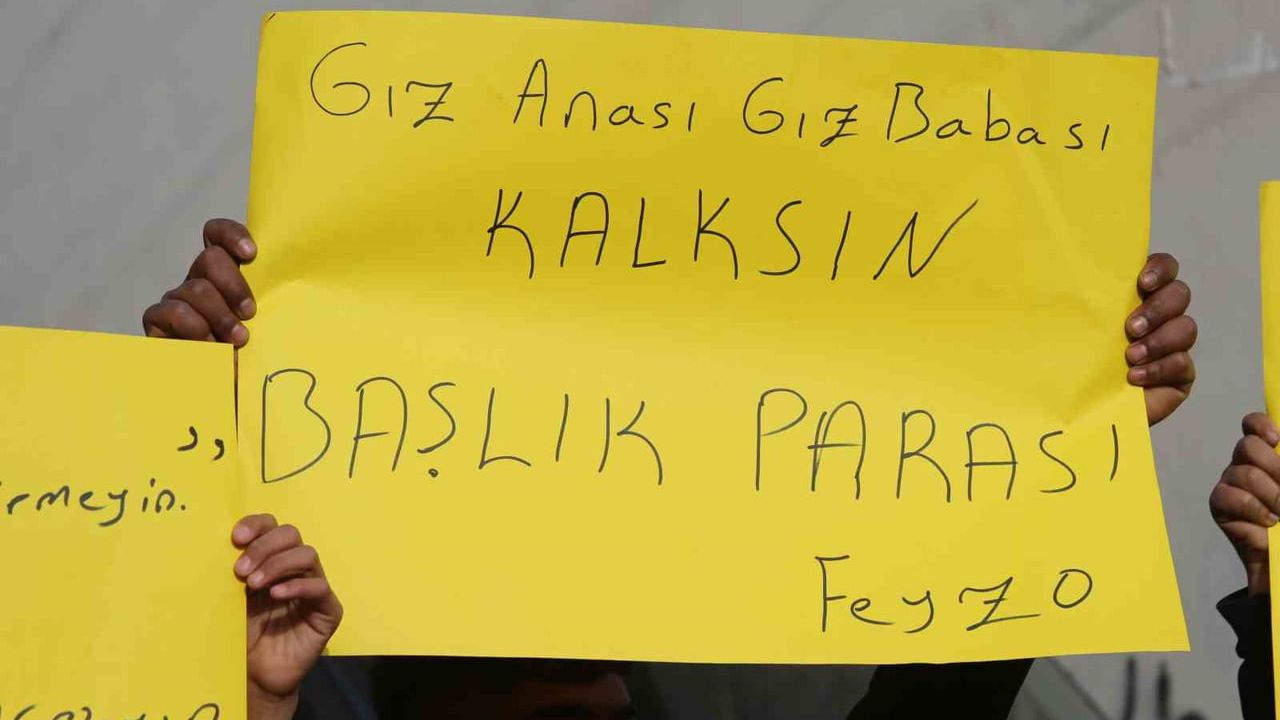 Gız Anası Gız Babası
KALKSIN
BAŞLIK PARASI
Feyzo
,,
ermeyin.